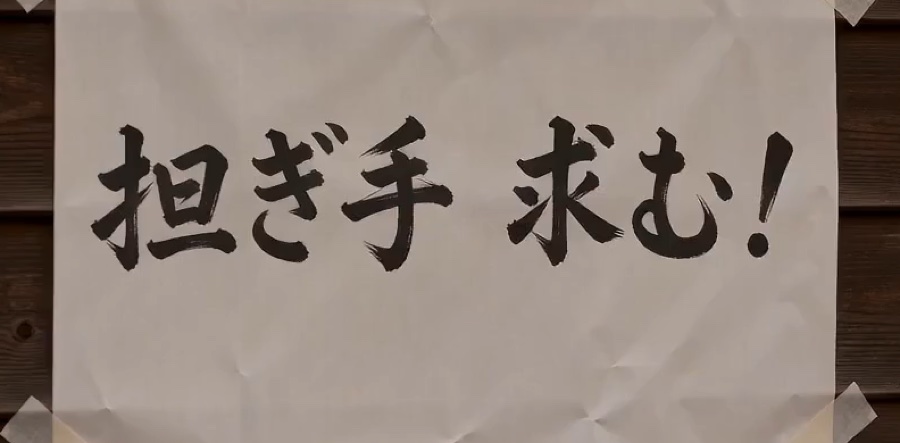 担ぎ手 求む!